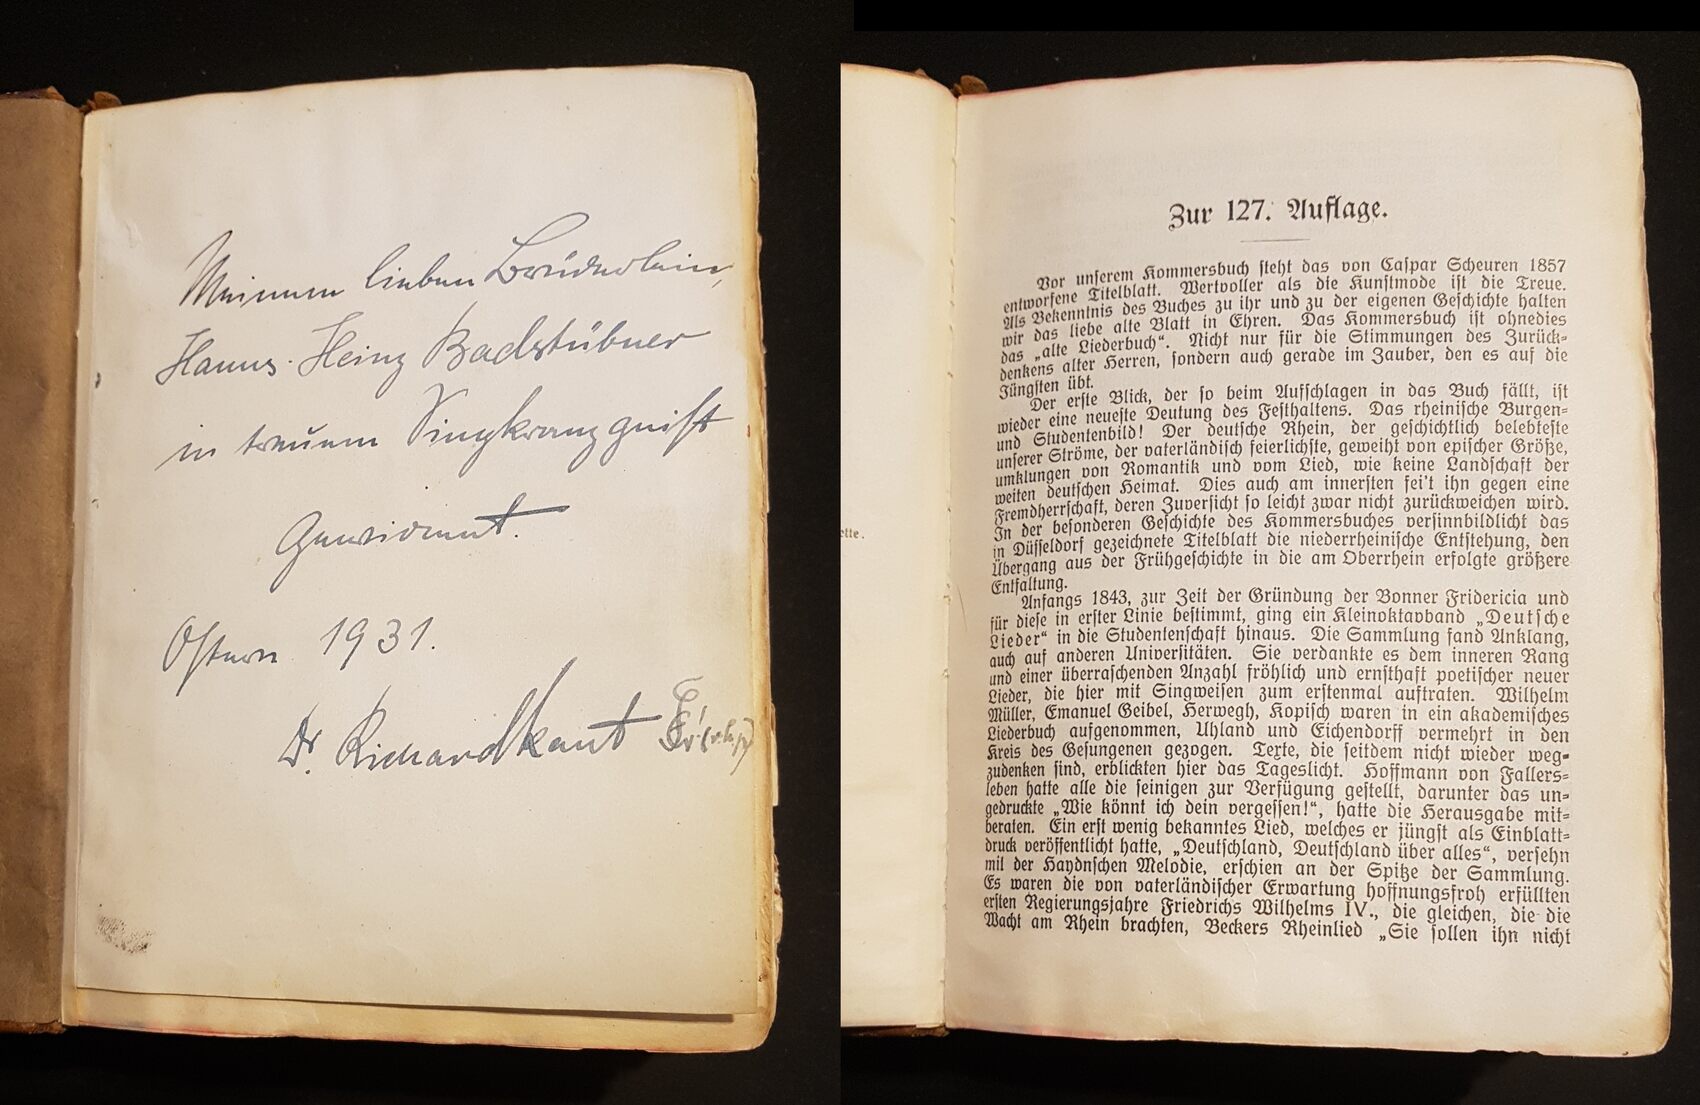 Meinem lieben Brüderlein,
Hanns-Heinz Badstübner
in treuem Singkranzgeist
Gewidmet.
Ostern 1931.
Dr. Richard Kant
ette.
Zur 127. Auflage.
Vor unserem Kommersbuch steht das von Caspar Scheuren 1857
entworfene Titelblatt. Wertvoller als die Kunstmode ist die Treue.
Als Bekenntnis des Buches zu ihr und zu der eigenen Geschichte halten
wir das liebe alte Blatt in Ehren. Das Kommersbuch ist ohnedies
das „alte Liederbuch“. Nicht nur für die Stimmungen des Zurück-
denkens alter Herren, sondern auch gerade im Zauber, den es auf die
Jüngsten übt.
Der erste Blick, der so beim Aufschlagen in das Buch fällt, ist
wieder eine neueste Deutung des Festhaltens. Das rheinische Burgen-
und Studentenbild! Der deutsche Rhein, der geschichtlich belebteste
unserer Ströme, der vaterländisch feierlichste, geweiht von epischer Größe,
umklungen von Romantik und vom Lied, wie keine Landschaft der
weiten deutschen Heimat. Dies auch am innersten fei't ihn gegen eine
Fremdherrschaft, deren Zuversicht so leicht zwar nicht zurückweichen wird.
In der besonderen Geschichte des Kommersbuches versinnbildlicht das
in Düsseldorf gezeichnete Titelblatt die niederrheinische Entstehung, den
Übergang aus der Frühgeschichte in die am Oberrhein erfolgte größere
Entfaltung.
Anfangs 1843, zur Zeit der Gründung der Bonner Fridericia und
für diese in erster Linie bestimmt, ging ein Kleinoktavband „Deutsche
Lieder“ in die Studentenschaft hinaus. Die Sammlung fand Anklang,
auch auf anderen Universitäten. Sie verdankte es dem inneren Rang
und einer überraschenden Anzahl fröhlich und ernsthaft poetischer neuer
Lieder, die hier mit Singweisen zum erstenmal auftraten. Wilhelm
Müller, Emanuel Geibel, Herwegh, Kopisch waren in ein akademisches
Liederbuch aufgenommen, Uhland und Eichendorff vermehrt in den
Kreis des Gesungenen gezogen. Texte, die seitdem nicht wieder weg-
zudenken sind, erblickten hier das Tageslicht. Hoffmann von Fallers-
leben hatte alle die seinigen zur Verfügung gestellt, darunter das un-
gedruckte „Wie könnt ich dein vergessen!“, hatte die Herausgabe mit-
beraten. Ein erst wenig bekanntes Lied, welches er jüngst als Einblatt-
druck veröffentlicht hatte, „Deutschland, Deutschland über alles“, versehn
mit der Haydnschen Melodie, erschien an der Spitze der Sammlung.
Es waren die von vaterländischer Erwartung hoffnungsfroh erfüllten
ersten Regierungsjahre Friedrichs Wilhelms IV., die gleichen, die die
Wacht am Rhein brachten, Beckers Rheinlied „Sie sollen ihn nicht